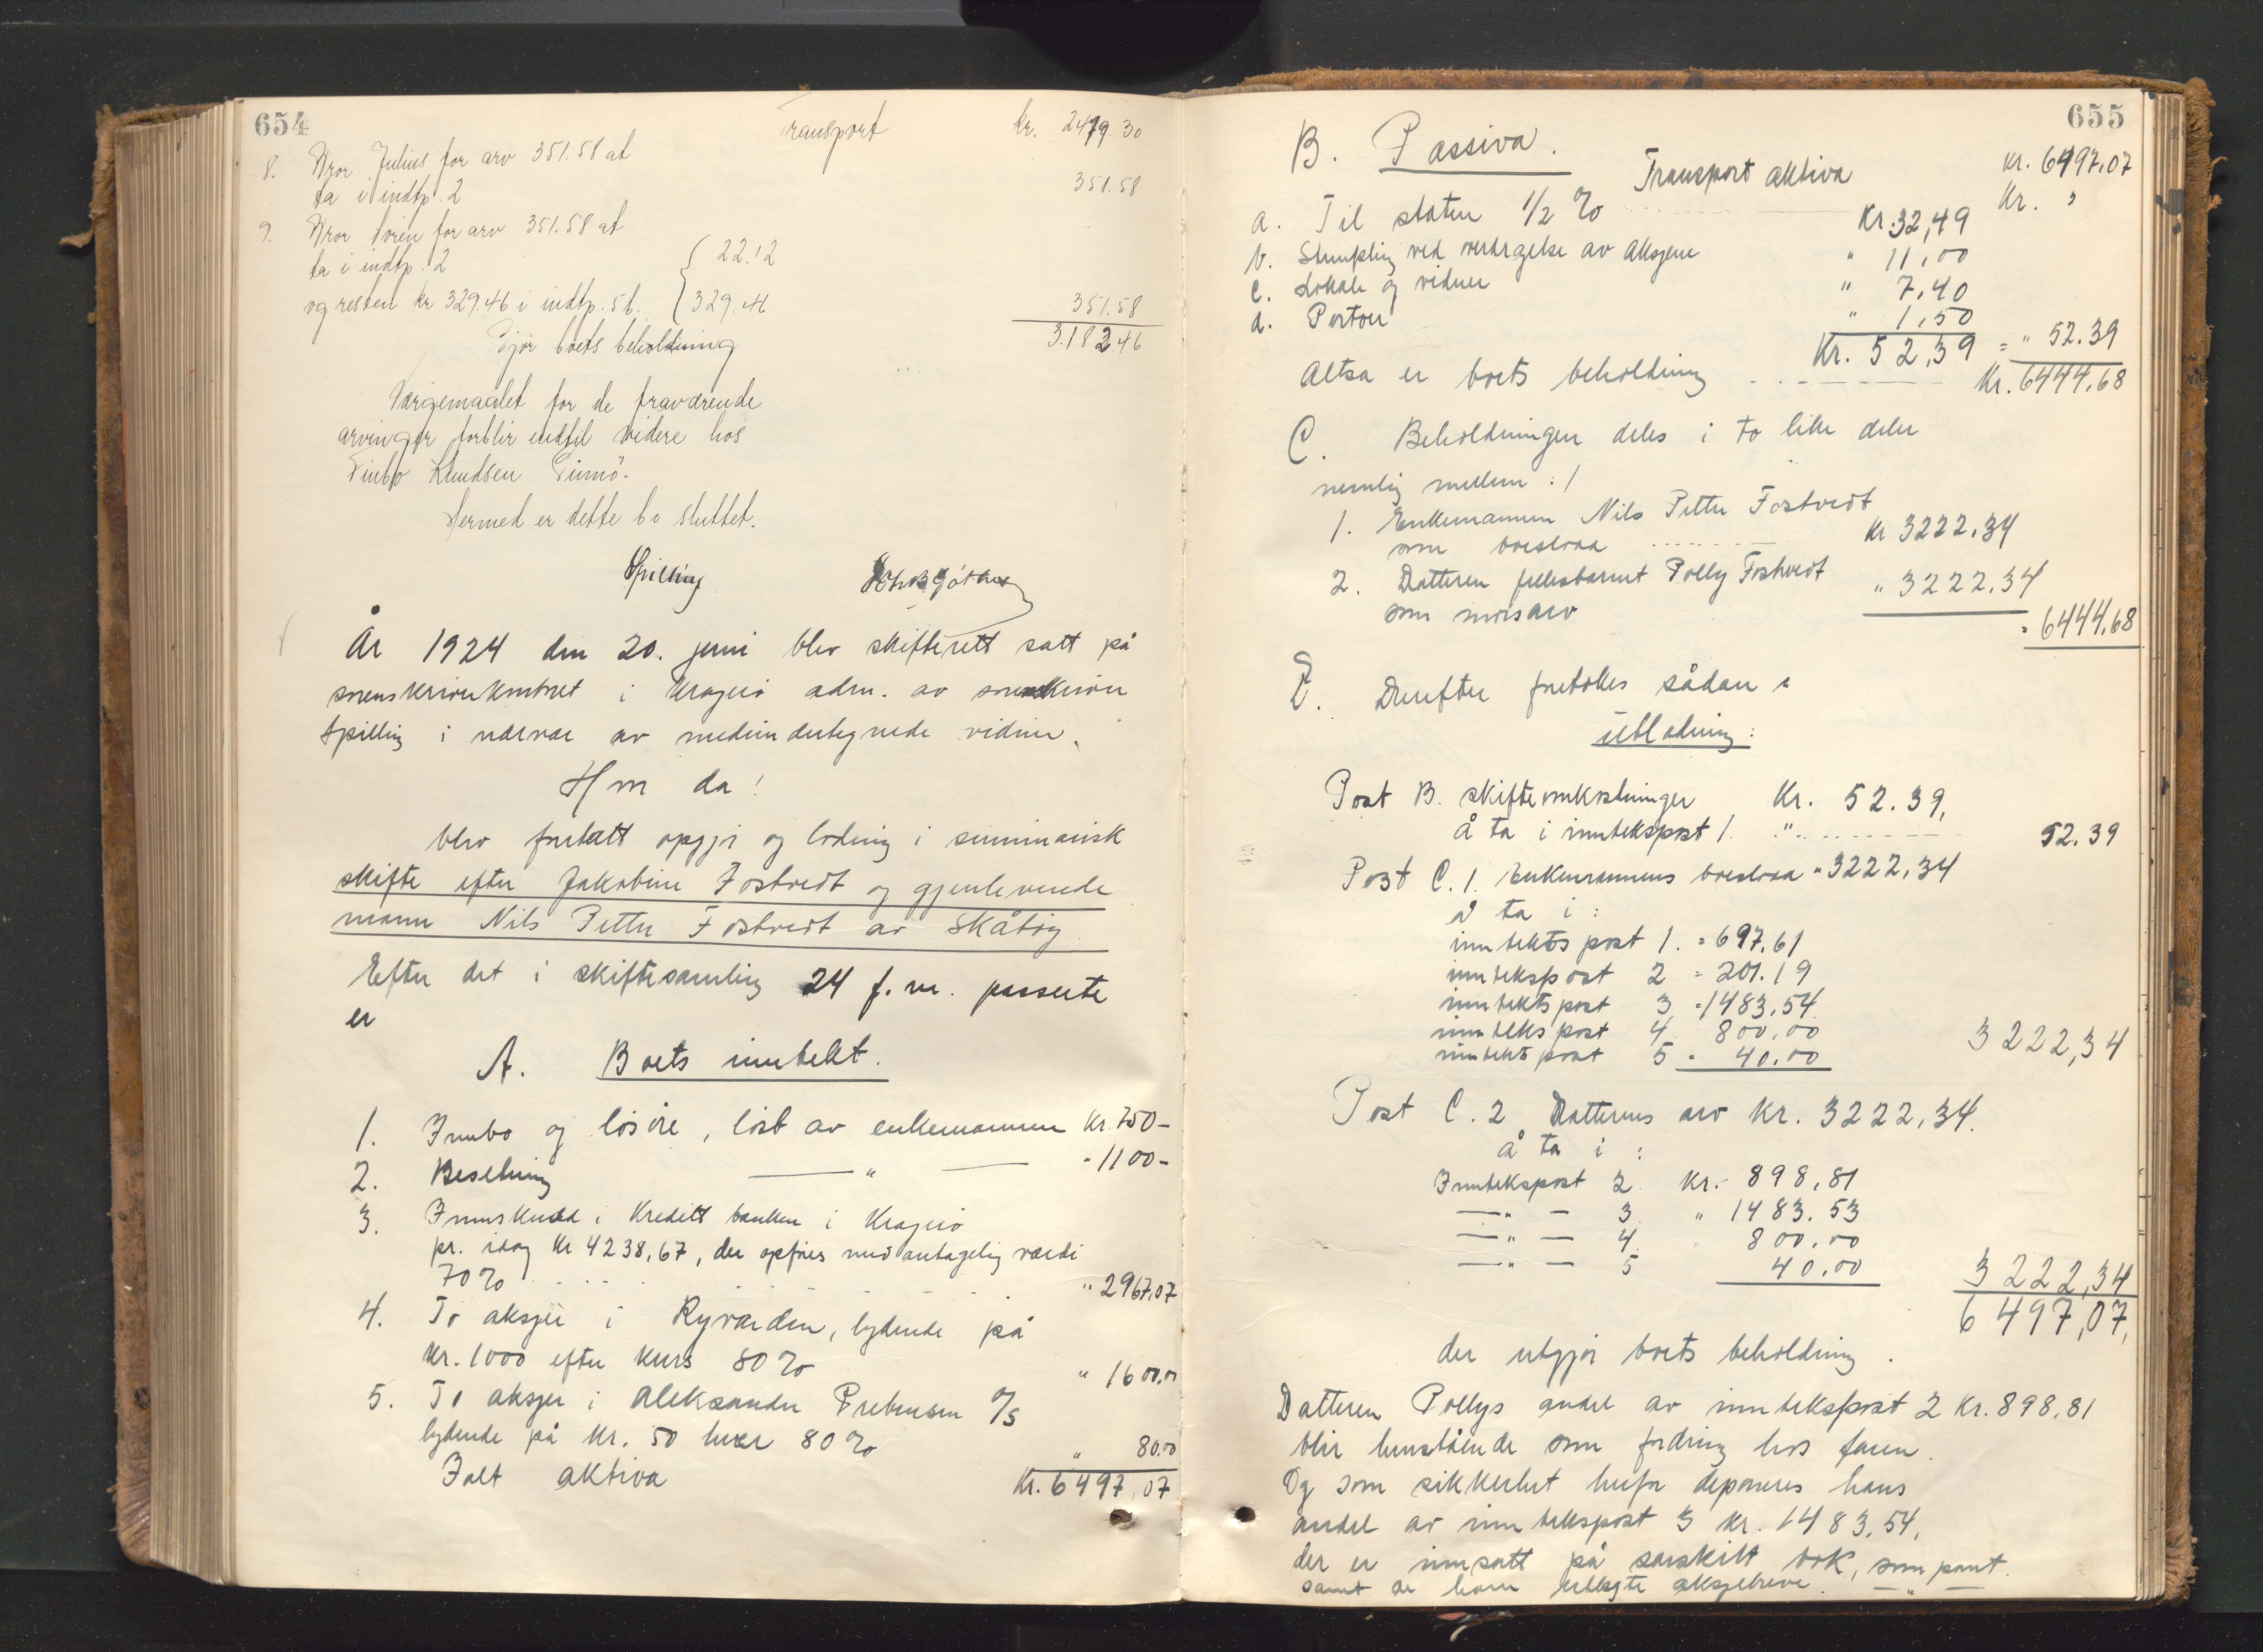 654
Transport kr. 2479.30
8. Bror Julius for arv 351.58 at
ta i indtp. 2 351.58
9. Bror Søren for arv 351.58 at
ta i indtp. 2 { 22.12
og resten kr 329.46 i indtp. 5 b. { 329.46 351.58
Gjør boets beholdning 3.182.46
Værgemaalet for de fraværende
arvinger forblir indtil videre hos
Knudsen
Hermed er dette bo sluttet.
Spilling
År 1924 den 20. juni blev skifterett satt på
sorenskriverkontoret i Kragerø adm. av sorenskriver
Spilling i nærvær av medundertegnede vidner.
Hvor da!
blev foretatt opgjør og lodning i summarisk
skifte efter Jakobine Fostvedt og gjenlevende
mann Nils Petter Fostvedt av Skåtøy
Efter det i skiftesamling 24 f. m. passerte
er
A. Boets inntekt.
1. Innbo og løsøre, løst av enkemannen Kr. 750-
2. Besetning — " — " 1100-
3. Innskudd i Kreditt banken i Kragerø
pr. idag Kr 4238,67, der opføres med antagelig værdi
70% " 2967,07
4. To aksjer i Ryvarden, lydende på
kr. 1000 efter kurs 80% " 1600,00
5. To aksjer i Aleksander Prebensen A/S
lydende på kr. 50 hver 80% " 80.00
Ialt aktiva Kr. 6497,07
655
B. Passiva.
Transport aktiva kr. 6497,07
Kr. "
a. Til staten 1/2 % Kr. 32,49
b. Stempling ved overdragelse av Aksjene " 11,00
c. Lokale og vidner " 7,40
d. Portoer " 1,50
Kr. 52,39 = " 52.39
Altsa er boets beholdning Kr. 6444,68
C. Beholdningen deles i to like deler
nemlig mellem :/
1. Enkemannen Nils Petter Fostvedt
som boeslodd Kr 3222,34
2. Datteren fellesbarnet Polly Fostvedt
som morsarv " 3222,34
= 6444,68
Derefter foretokes sådan
utlodning:
Post B. skifteomkostninger Kr. 52.39,
å ta i inntekspost 1. " 52.39
Post C. 1. Enkemannens boeslodd " 3222,34
å ta i :
inntekts post 1. = 697,61
inntekspost 2 = 201.19
inntekts post 3 = 1483,54
innteks post 4. 800,00
inntekts post 5 - 40,00 3222,34
Post C. 2 Datterens arv Kr. 3222,34.
å ta i :
Inntekspost 2 Kr. 898,81
— " — 3 " 1483.53
— " — 4. " 800,00
— " — 5 40,00 3222,34
6497,07,
der utgjør boets beholdning.
Datteren Pollys andel av inntekspost 2 Kr. 898,81
blir henstående som fordring hos faren.
Og som sikkerhet herfor deponeres hans
andel av inntekspost 3 kr. 1483,54,
der er innsatt på særskilt bok, som pant.
samt de ham utlagte aksjebreve — " —